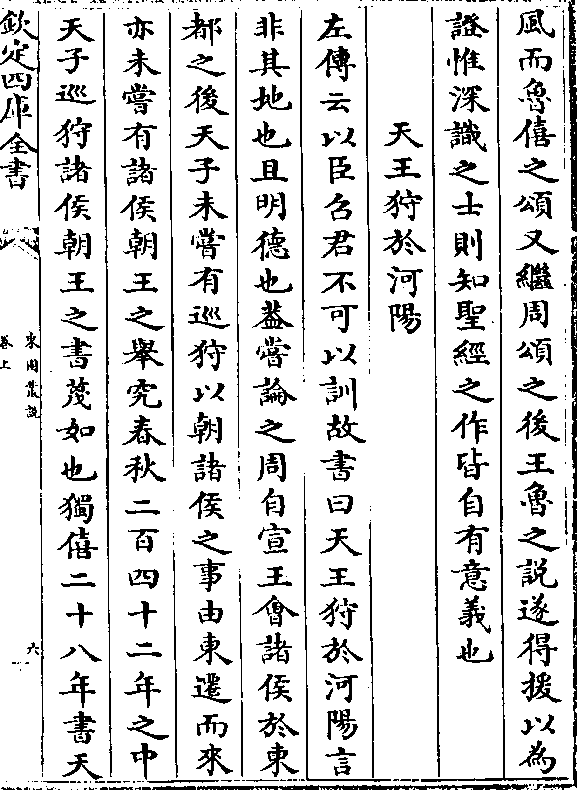 風而魯僖之頌又繼周頌之後王魯之説遂得援以為
證惟深識之士則知聖經之作皆自有意義也
天王狩於河陽
左傳云以臣召君不可以訓故書曰天王狩於河陽言
非其地也且明德也葢嘗論之周自宣王會諸侯於東
都之後天子未嘗有巡狩以朝諸侯之事由東遷而來
亦未嘗有諸侯朝王之舉究春秋二百四十二年之中
天子巡狩諸侯朝王之書蔑如也獨僖二十八年書天
欽定四庫全書
卷上
六